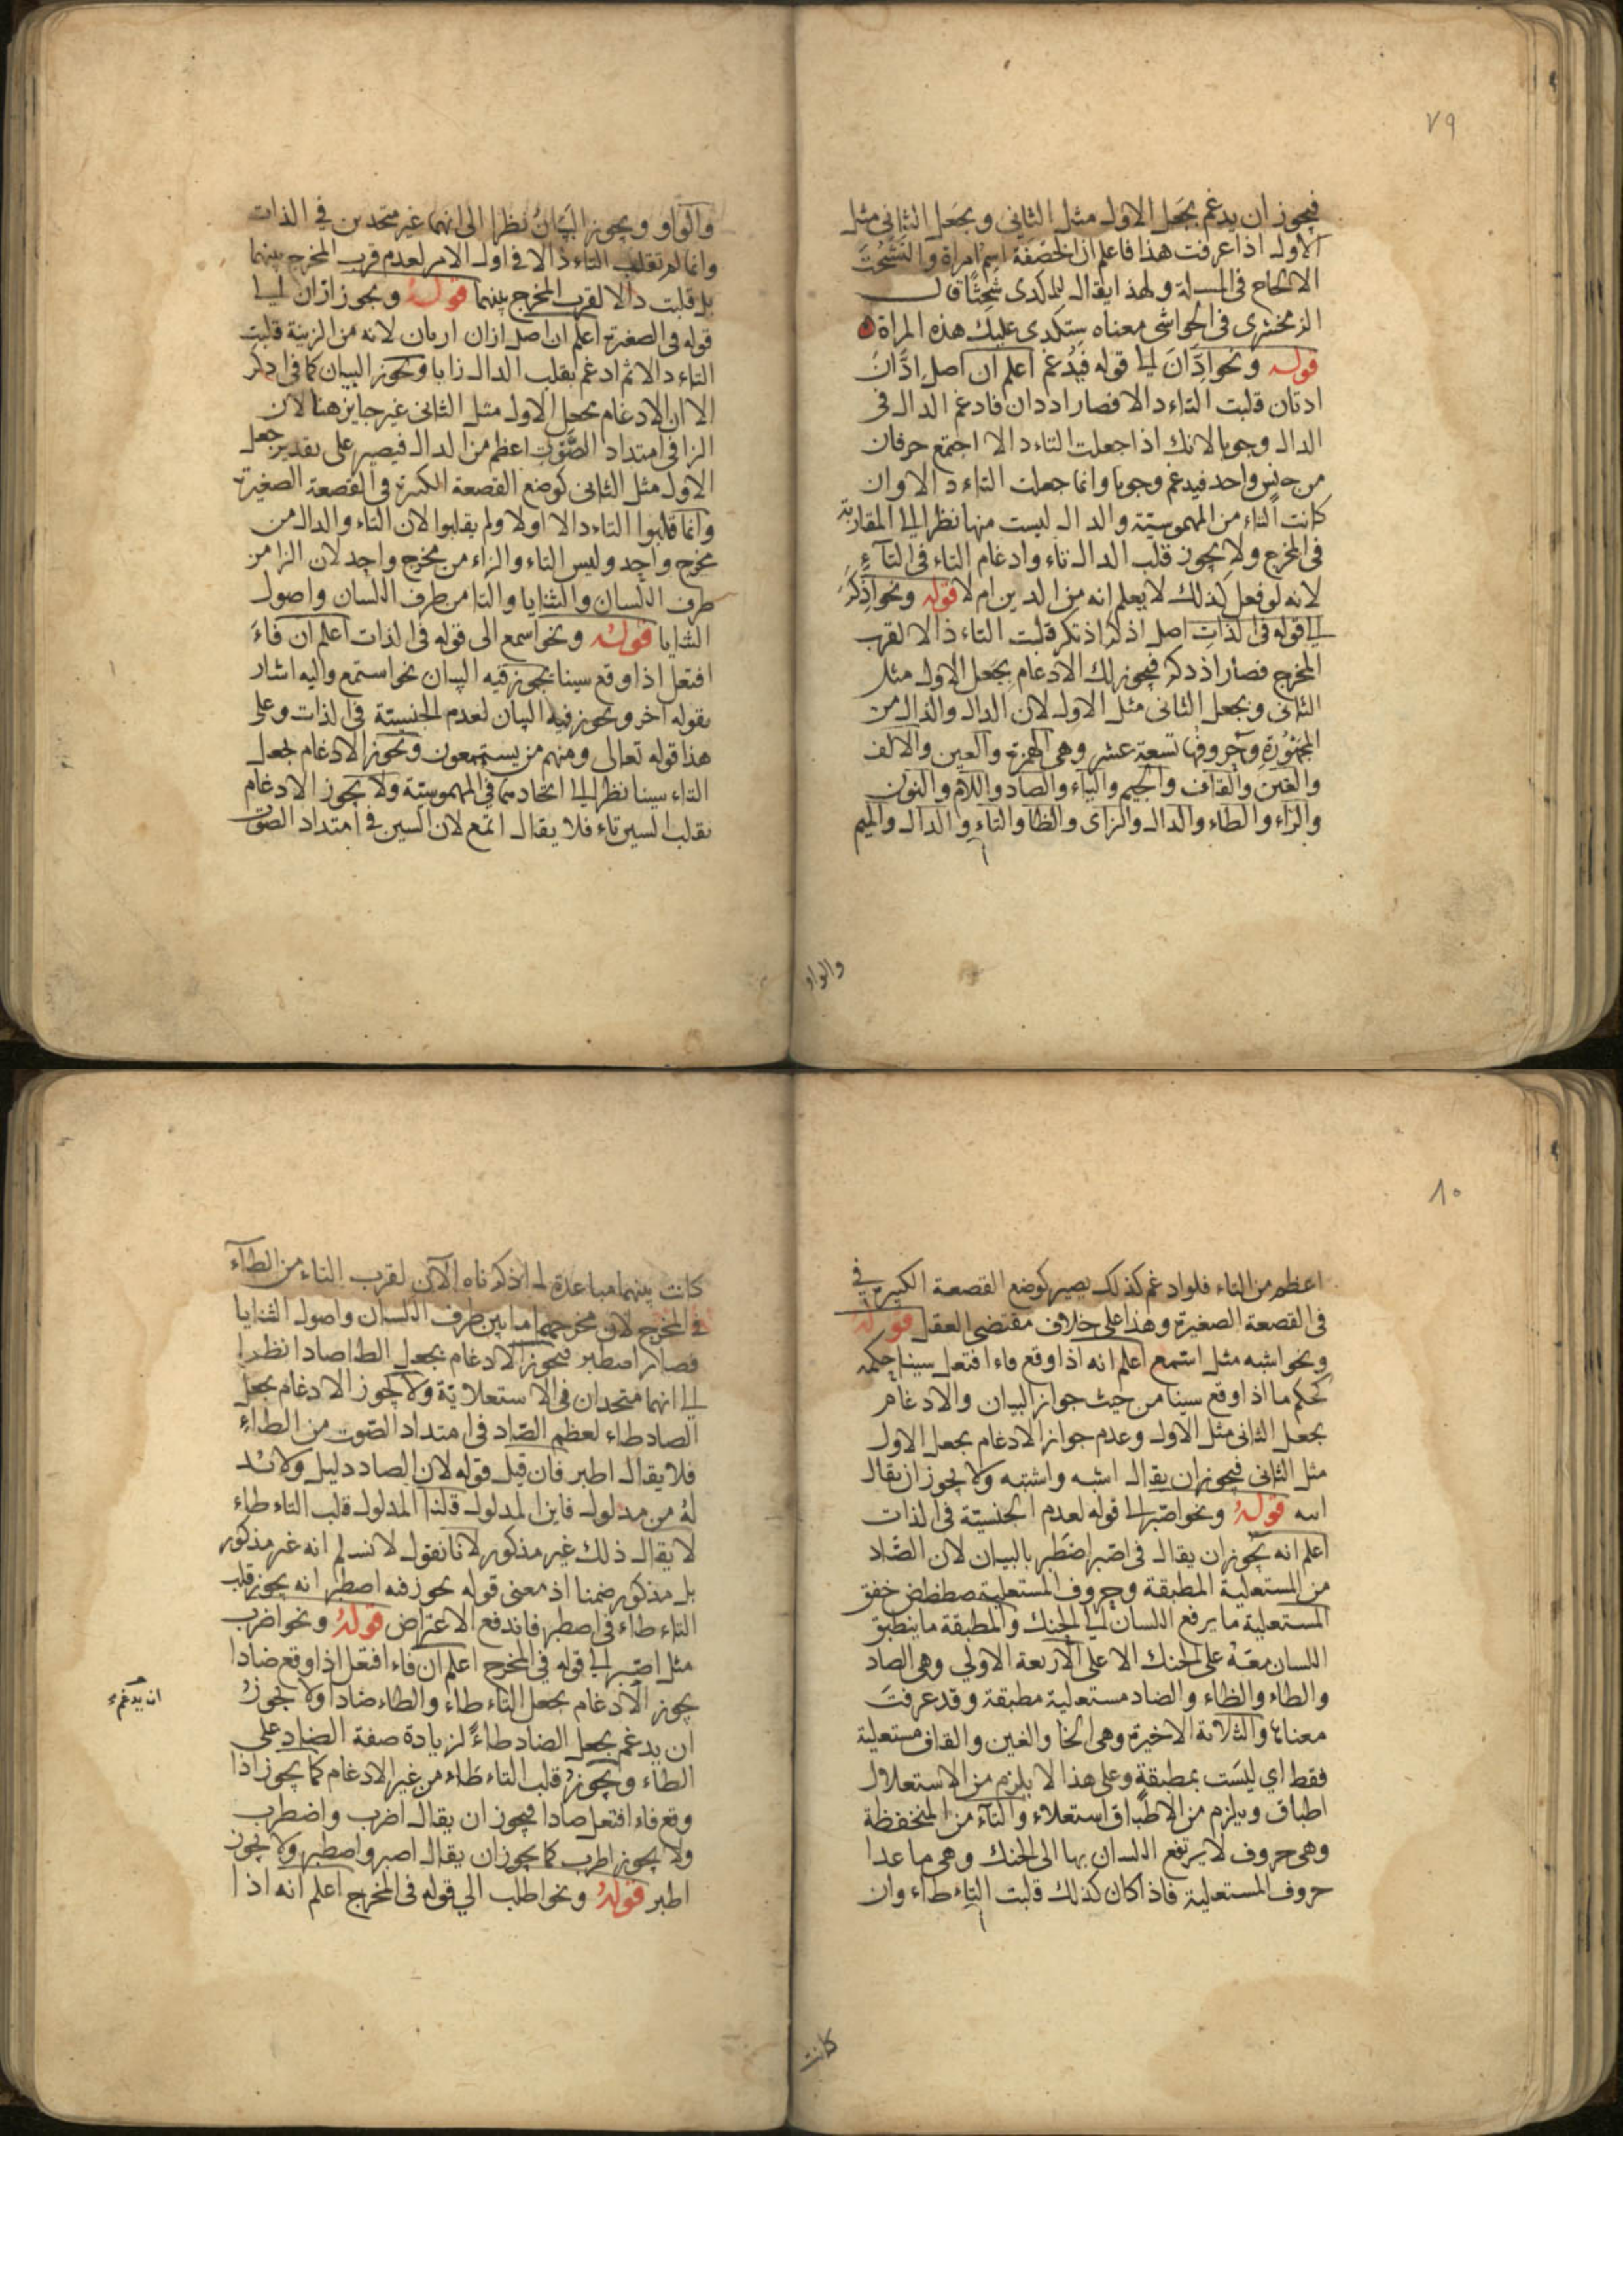 ٧٩
فيجوز ان يدغم بجعل الاول مثل الثاني وبجعل الثاني مثل
الاول اذا عرفت هذا فاعلم ان الخصفة اسم امراة والتشحث
الالحاح في المسلة ولهذا يقال للمكدى شحثا قال
الزمخشرى في الحواشى معناه ستكدى عليك هذه المراة
قوله ونحو ادان الى قوله فيدغم اعلم ان اصل ادان
ادتان قلبت التاء دالا فصار اددان فادغم الدال في
الدال وجوبا لانك اذا جعلت التاء دالا اجتمع حرفان
من جنس واحد فيدغم وجوبا وانما جعلت التاء دالا وان
كانت التاء من المهموسية والدال ليست منها نظرا الى المقاربة
في المخرج ولا يجوز قلب الدال تاء وادغام التاء في التاء
لانه لو فعل كذلك لا يعلم انه من الدين ام لا قوله ونحو اذكر
الى قوله في الذات اصل اذكر اذتكر قلبت التاء ذالا لقرب
المخرج فصار اذ دكر فيجوز لك الادغام بجعل الاول مثل
الثاني وبجعل الثاني مثل الاول لان الدال والذال من
المجهورة وحروفها تسعة عشر وهي الهمزة والعين والالف
والغين والقاف والجيم والياء والضاد واللام والنون
والراء والطاء والدال والزاى والظا والتاء والذال والميم
والواو
والواو ويجوز البيان نظرا الى انهما غير متحدين في الذات
وانما لم تقلب التاء ذالا في اول الامر لعدم قرب المخرج بينهما
بل قلبت دالا لقرب المخرج بينهما قوله ونحو ازان الى
قوله في الصغيرة اعلم ان اصل ازان ازتان لانه من الزينة قلبت
التاء دالا ثم ادغم بقلب الدال زايا ويجوز البيان كما في اذكر
الا ان الادغام بجعل الاول مثل الثاني غير جايز هنا لان
الزا في امتداد الصوت اعظم من الدال فيصير على تقدير جعل
الاول مثل الثاني كوضع القصعة الكبيرة في القصعة الصغيرة
وانما قلبوا التاء دالا اولا ولم يقلبوا لان التاء والدال من
مخرج واحد وليس التاء والزاء من مخرج واحد لان الزا من
طرف اللسان والثنايا والتا من طرف اللسان واصول
الثنايا قوله ونحو اسمع الى قوله في الذات اعلم ان فاء
افتعل اذا وقع سينا يجوز فيه البيان نحو استمع واليه اشار
بقوله اخر ويجوز فيه البيان لعدم الجنسية في الذات وعلى
هذا قوله تعالى ومنهم من يستمعون ويجوز الادغام بجعل
التاء سينا نظرا الى اتحادهما في المهموسية ولا يجوز الادغام
بقلب السين تاء فلا يقال اتمع لان السين في امتداد الصوت
٨٠
اعظم من التاء فلو ادغم كذلك يصير كوضع القصعة الكبيرة في
في القصعة الصغيرة وهذا على خلاف مقتضى العقل قوله
ونحو اشبه مثل استمع اعلم انه اذا وقع فاء افتعل سينا حكمه
كحكم ما اذا وقع سينا من حيث جواز البيان والادغام
بجعل الثاني مثل الاول وعدم جواز الادغام بجعل الاول
مثل الثاني فيجوز ان يقال اشبه واشتبه ولا يجوز ان يقال
اتبه قوله ونحو اصبر الى قوله لعدم الجنسية في الذات
اعلم انه يجوز ان يقال في اصبر اصطبر بالبيان لان الصاد
من المستعلية المطبقة وحروف المستعلية صطظض خغق
المستعلية ما يرفع اللسان الى الحنك والمطبقة ما ينطبق
اللسان معه على الحنك الاعلى الاربعة الاولى وهي الصاد
والطاء والظاء والضاد مستعلية مطبقة وقد عرفت
معناها والثلاثة الاخيرة وهي الخا والغين والقاف مستعلية
فقط اي ليست بمطبقة وعلى هذا لا يلزم من الاستعلال
اطباق ويلزم من الاطباق استعلاء والتاء من المنخفظة
وهي حروف لا يرتفع اللسان بها الى الحنك وهي ما عدا
حروف المستعلية فاذا كان كذلك قلبت التاء طاء وان
كانت
كانت بينهما مباعدة لما ذكرناه الان لقرب التاء من الطاء
في المخرج لان مخرجهما ما بين طرف اللسان واصول الثنايا
فصار اصطبر فيجوز الادغام بجعل الطا صادا نظرا
الى انهما متحدان في الاستعلائية ولا يجوز الادغام بجعل
الصاد طاء لعظم الصاد في امتداد الصوت من الطاء
فلا يقال اطبر فان قيل قوله لان الصاد دليل ولا بد
له من مدلول فاين المدلول قلنا المدلول قلب التاء طاء
لا يقال ذلك غير مذكور لانا نقول لا نسلم انه غير مذكور
بل مذكور ضمنا اذ معنى قوله يجوز فيه اصطبر انه يجوز قلب
التاء طاء في اصطبر فاندفع الاعتراض قوله ونحو اضرب
مثل اصبر الى قوله في المخرج اعلم ان فاء افتعل اذا وقع ضادا
يجوز الادغام بجعل التاء طاء والطاء ضادا ولا يجوز
ان يدغم
ان يدغم بجعل الضاد طاء لزيادة صفة الضاد على
الطاء ويجوز قلب التاء طاء من غير الادغام كما يجوز اذا
وقع فاء افتعل صادا فيجوز ان يقال اضرب واضطرب
ولا يجوز اطرب كما يجوز ان يقال اصبر واصطبر ولا يجوز
اطبر قوله ونحو اطلب الي قوله في المخرج اعلم انه اذا